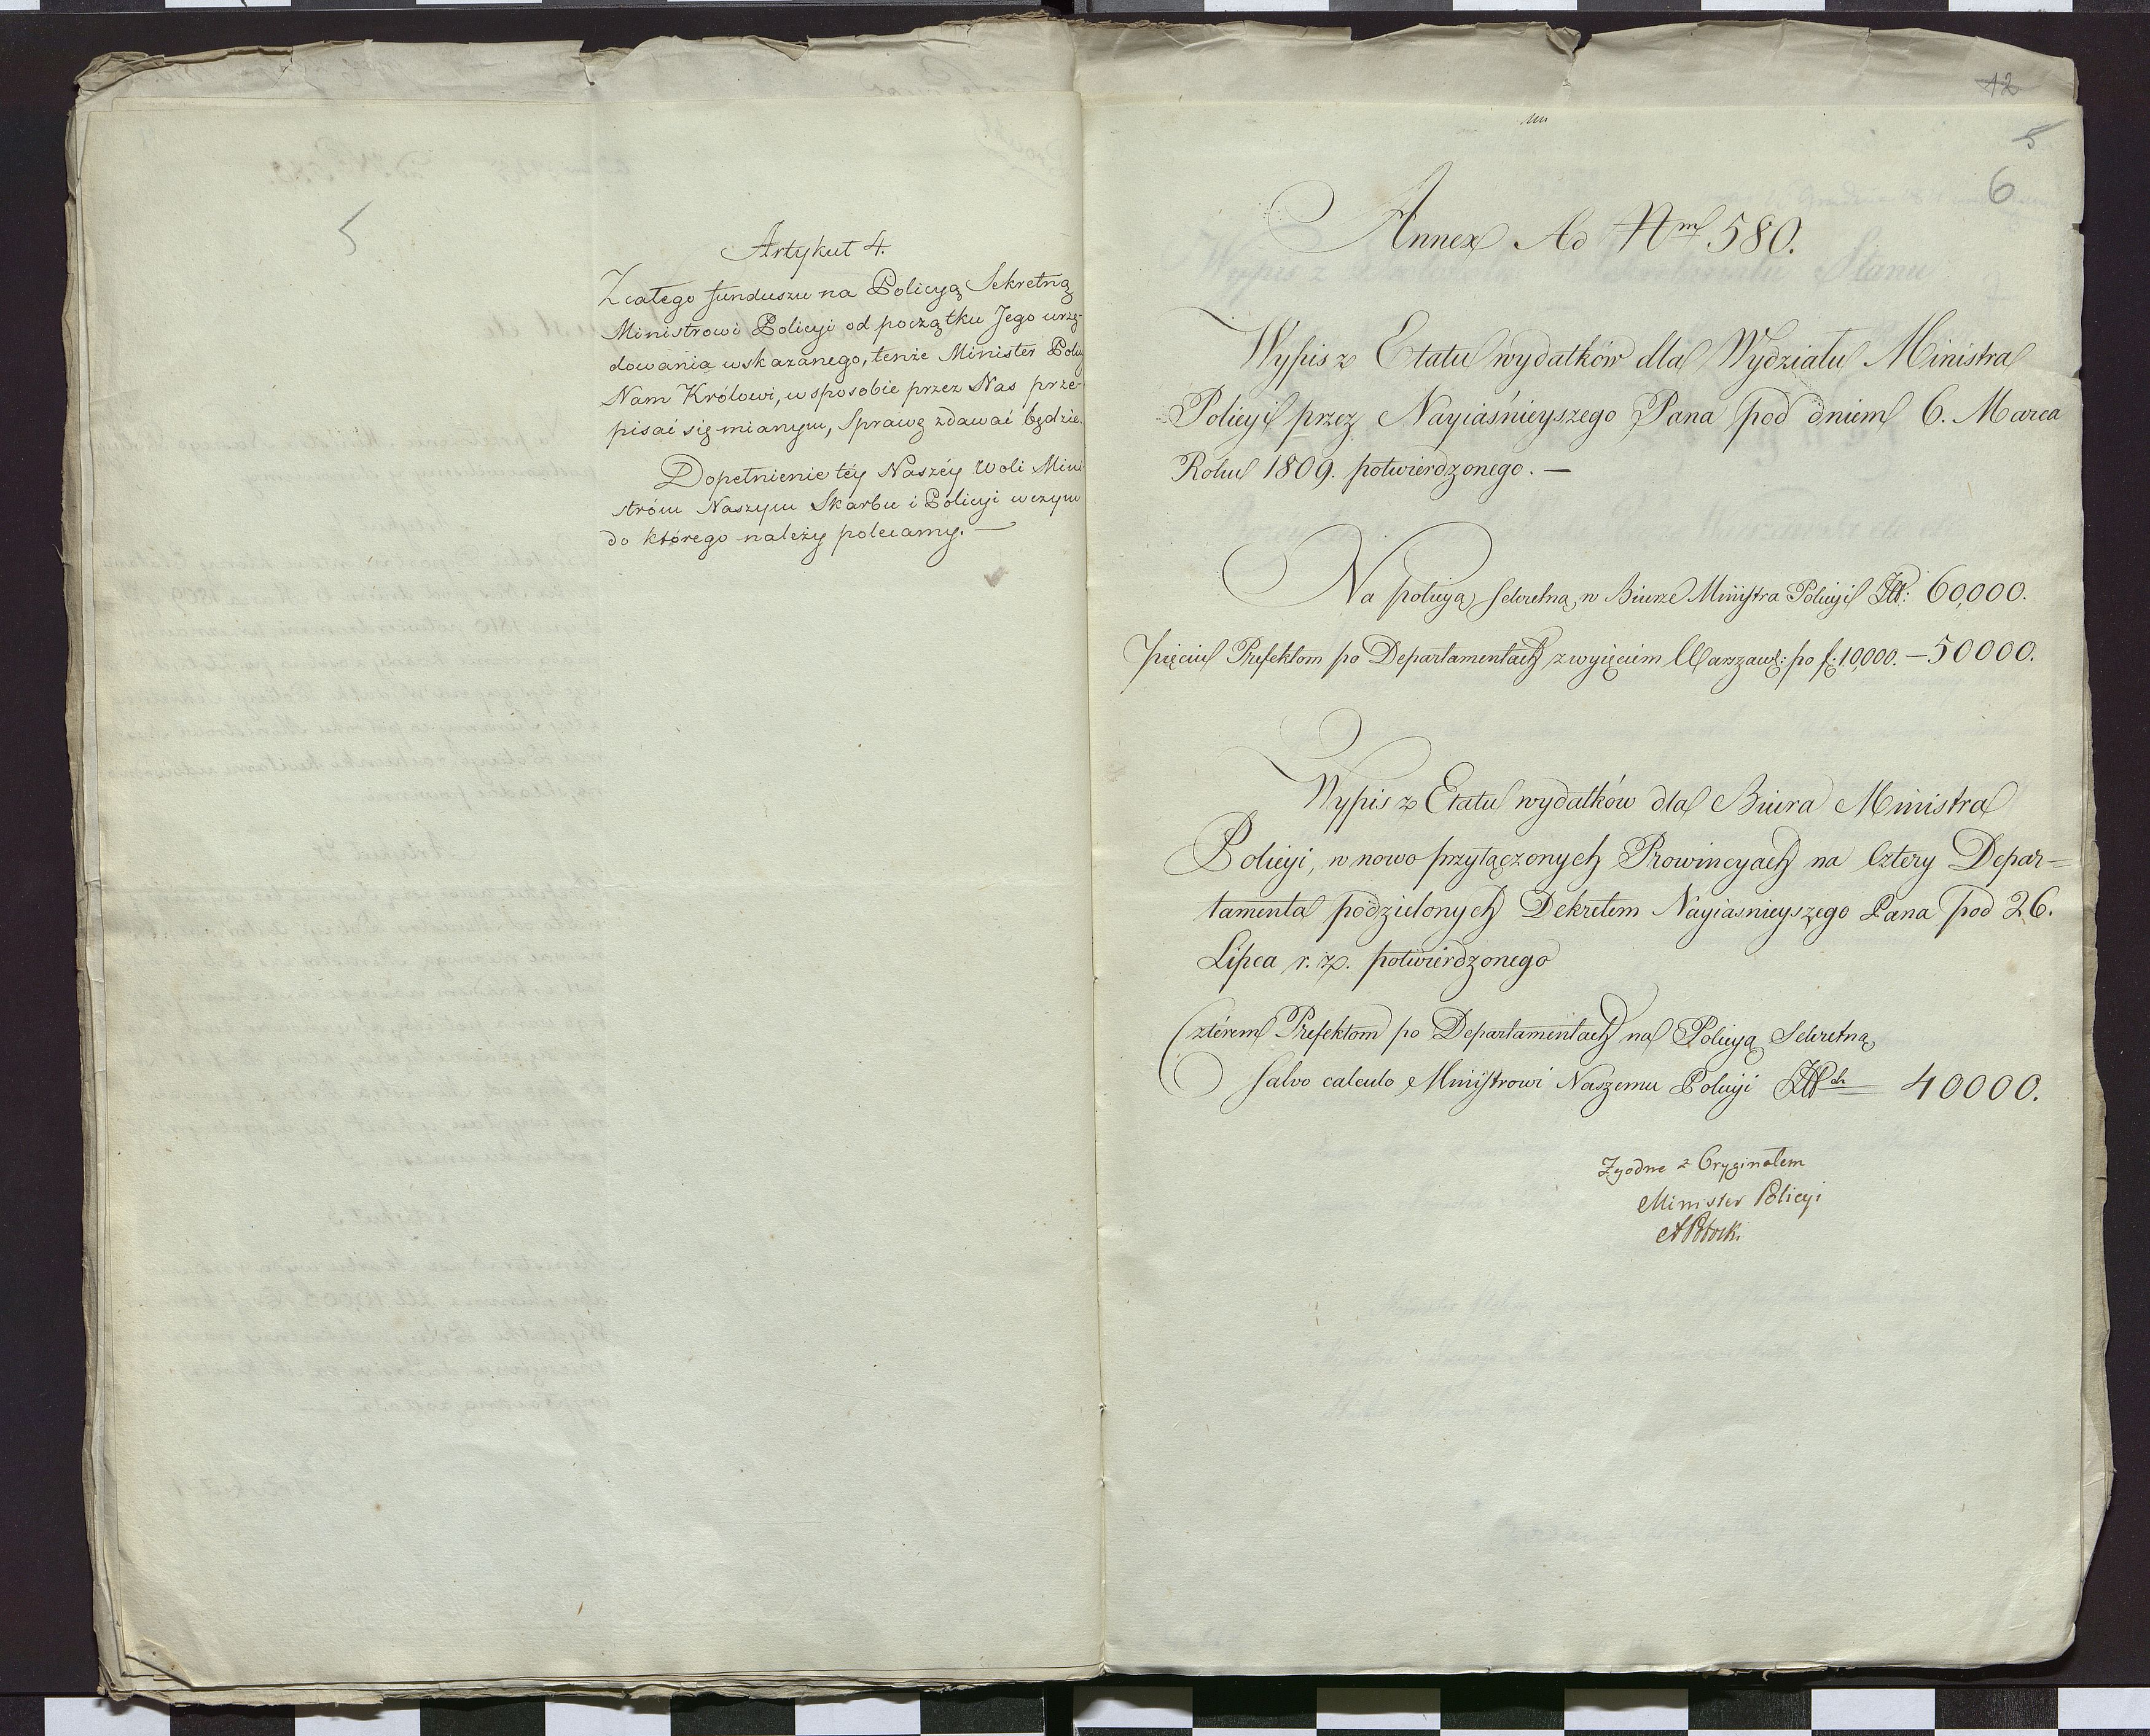 5
Artykuł 4.
Z całego funduszu na Policyą Sekretną
Ministrowi Policyi od początku Jego urzę-
dowania wskazanego, tenże Minister Policy
Nam Królowi, w sposobie przez Nas prze-
pisać się mianym, Sprawę zdawać będzie.
Dopełnienie téy Naszéy Woli Mini
strom Naszym Skarbu i Policyi w czym
do którego należy polecamy. —
12
5
6
Annex Ad Nm 580.
Wypis z Etatu wydatków dla Wydziału Ministra
Policyi przez Nayiaśnieyszego Pana pod dniem 6. Marca
Roku 1809. potwierdzonego. —
Na policyą sekretną w Biurze Ministra Policyi Złł: 60,000.
pięciu Prefektom po Departamentach z wyięciem Warszaws: po f: 10,000. — 50000.
Wypis z Etatu wydatków dla Biura Ministra
Policyi, w nowo przyłączonych Prowincyach na Cztery Depar=
tamenta podzielonych Dekretem Nayiasnieyszego Pana pod 26.
Lipca r. z. potwierdzonego
Cztérem Prefektom po Departamentach na Policyą Sekretną
Salvo calculo Ministrowi Naszemu Policyi Złłch 40000.
Zgodne z Oryginałem
Minister Policyi
APotocki